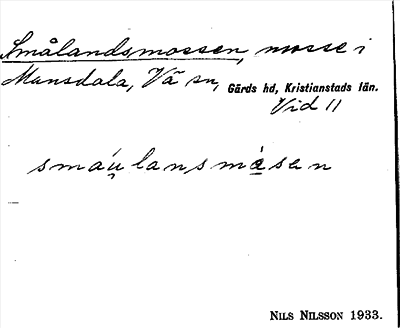 Smålandsmossen, mosse i
Munsdala, Vä sn, Gärds hd, Kristianstads län.
Vid 11
smáu̯lansmɑ̀sen
NILS NILSSON 1933.